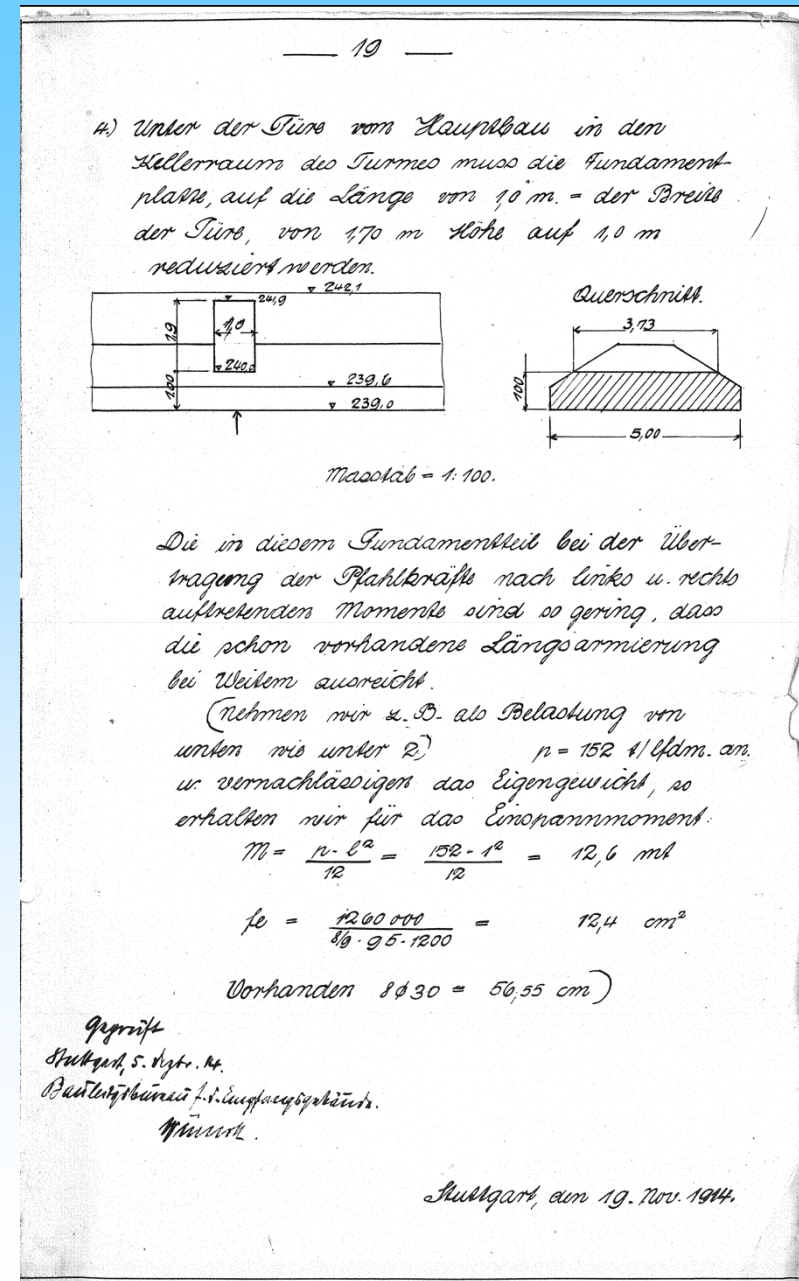 — 19 —
4.) Unter der Türe vom Hauptbau in den
Kellerraum des Turmes muss die Fundament-
platte, auf die Länge von 1,0 m. = der Breite
der Türe, von 1,70 m Höhe auf 1,0 m
reduziert werden.
242,1
241,9
1,9
1,0
240,0
100
239,6
239,0
Querschnitt.
3,73
100
5,00
Masstab = 1:100.
Die in diesem Fundamentteil bei der Über-
tragung der Pfahlkräfte nach links u. rechts
auftretenden Momente sind so gering, dass
die schon vorhandene Längsarmierung
bei Weitem ausreicht.
(nehmen wir z. B. als Belastung von
unten wie unter 2.) p = 152 t/lfdm. an.
u. vernachlässigen das Eigengewicht, so
erhalten wir für das Einspannmoment:
M = p · l² / 12 = 152 · 1² / 12 = 12,6 mt
fe = 1260 000 / 8/9 · 95 · 1200 = 12,4 cm²
Vorhanden 8 ø 30 = 56,55 cm)
Geprüft
Stuttgart, 5. Dezbr. 14.
f. d. Empfangsgebäude.
Stuttgart, den 19. Nov. 1914.